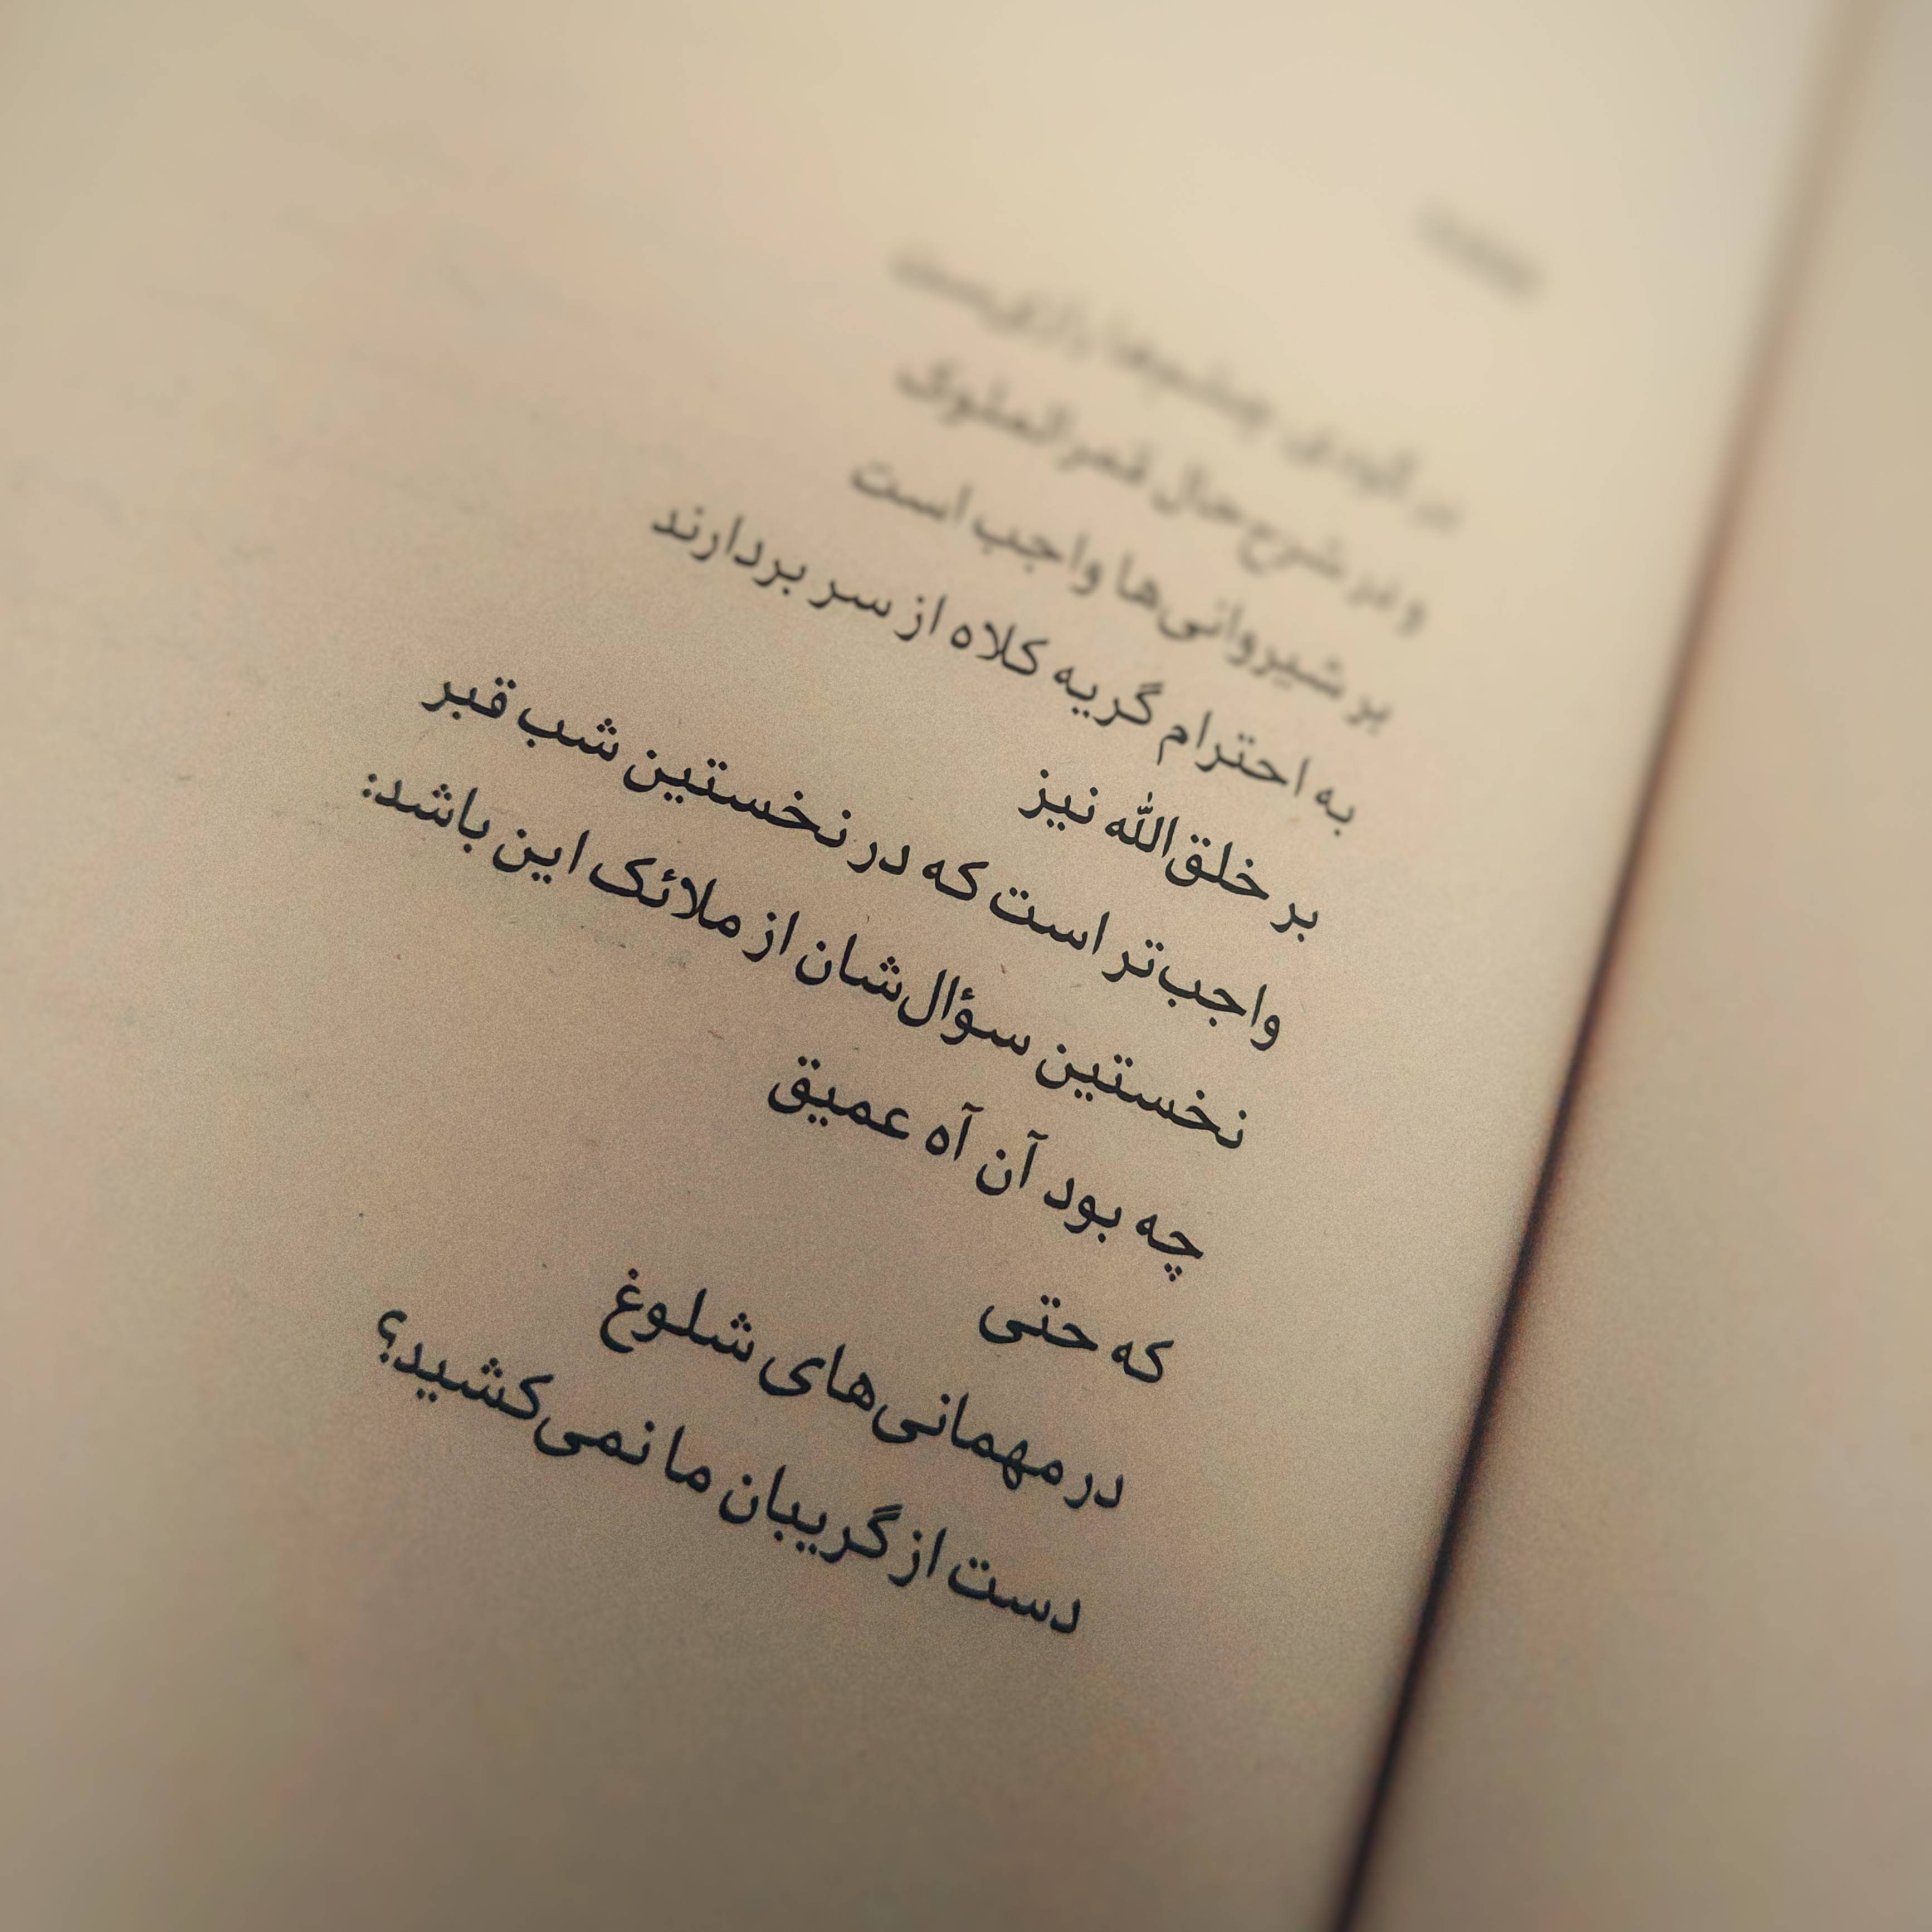 و در شرح حال قمرالملوک
بر شیروانی‌ها واجب است
به احترام گریه کلاه از سر بردارند
بر خلق‌الله نیز
واجب‌تر است که در نخستین شب قبر
نخستین سؤال‌شان از ملائک این باشد:
چه بود آن آه عمیق
که حتی
در مهمانی‌های شلوغ
دست از گریبان ما نمی‌کشید؟